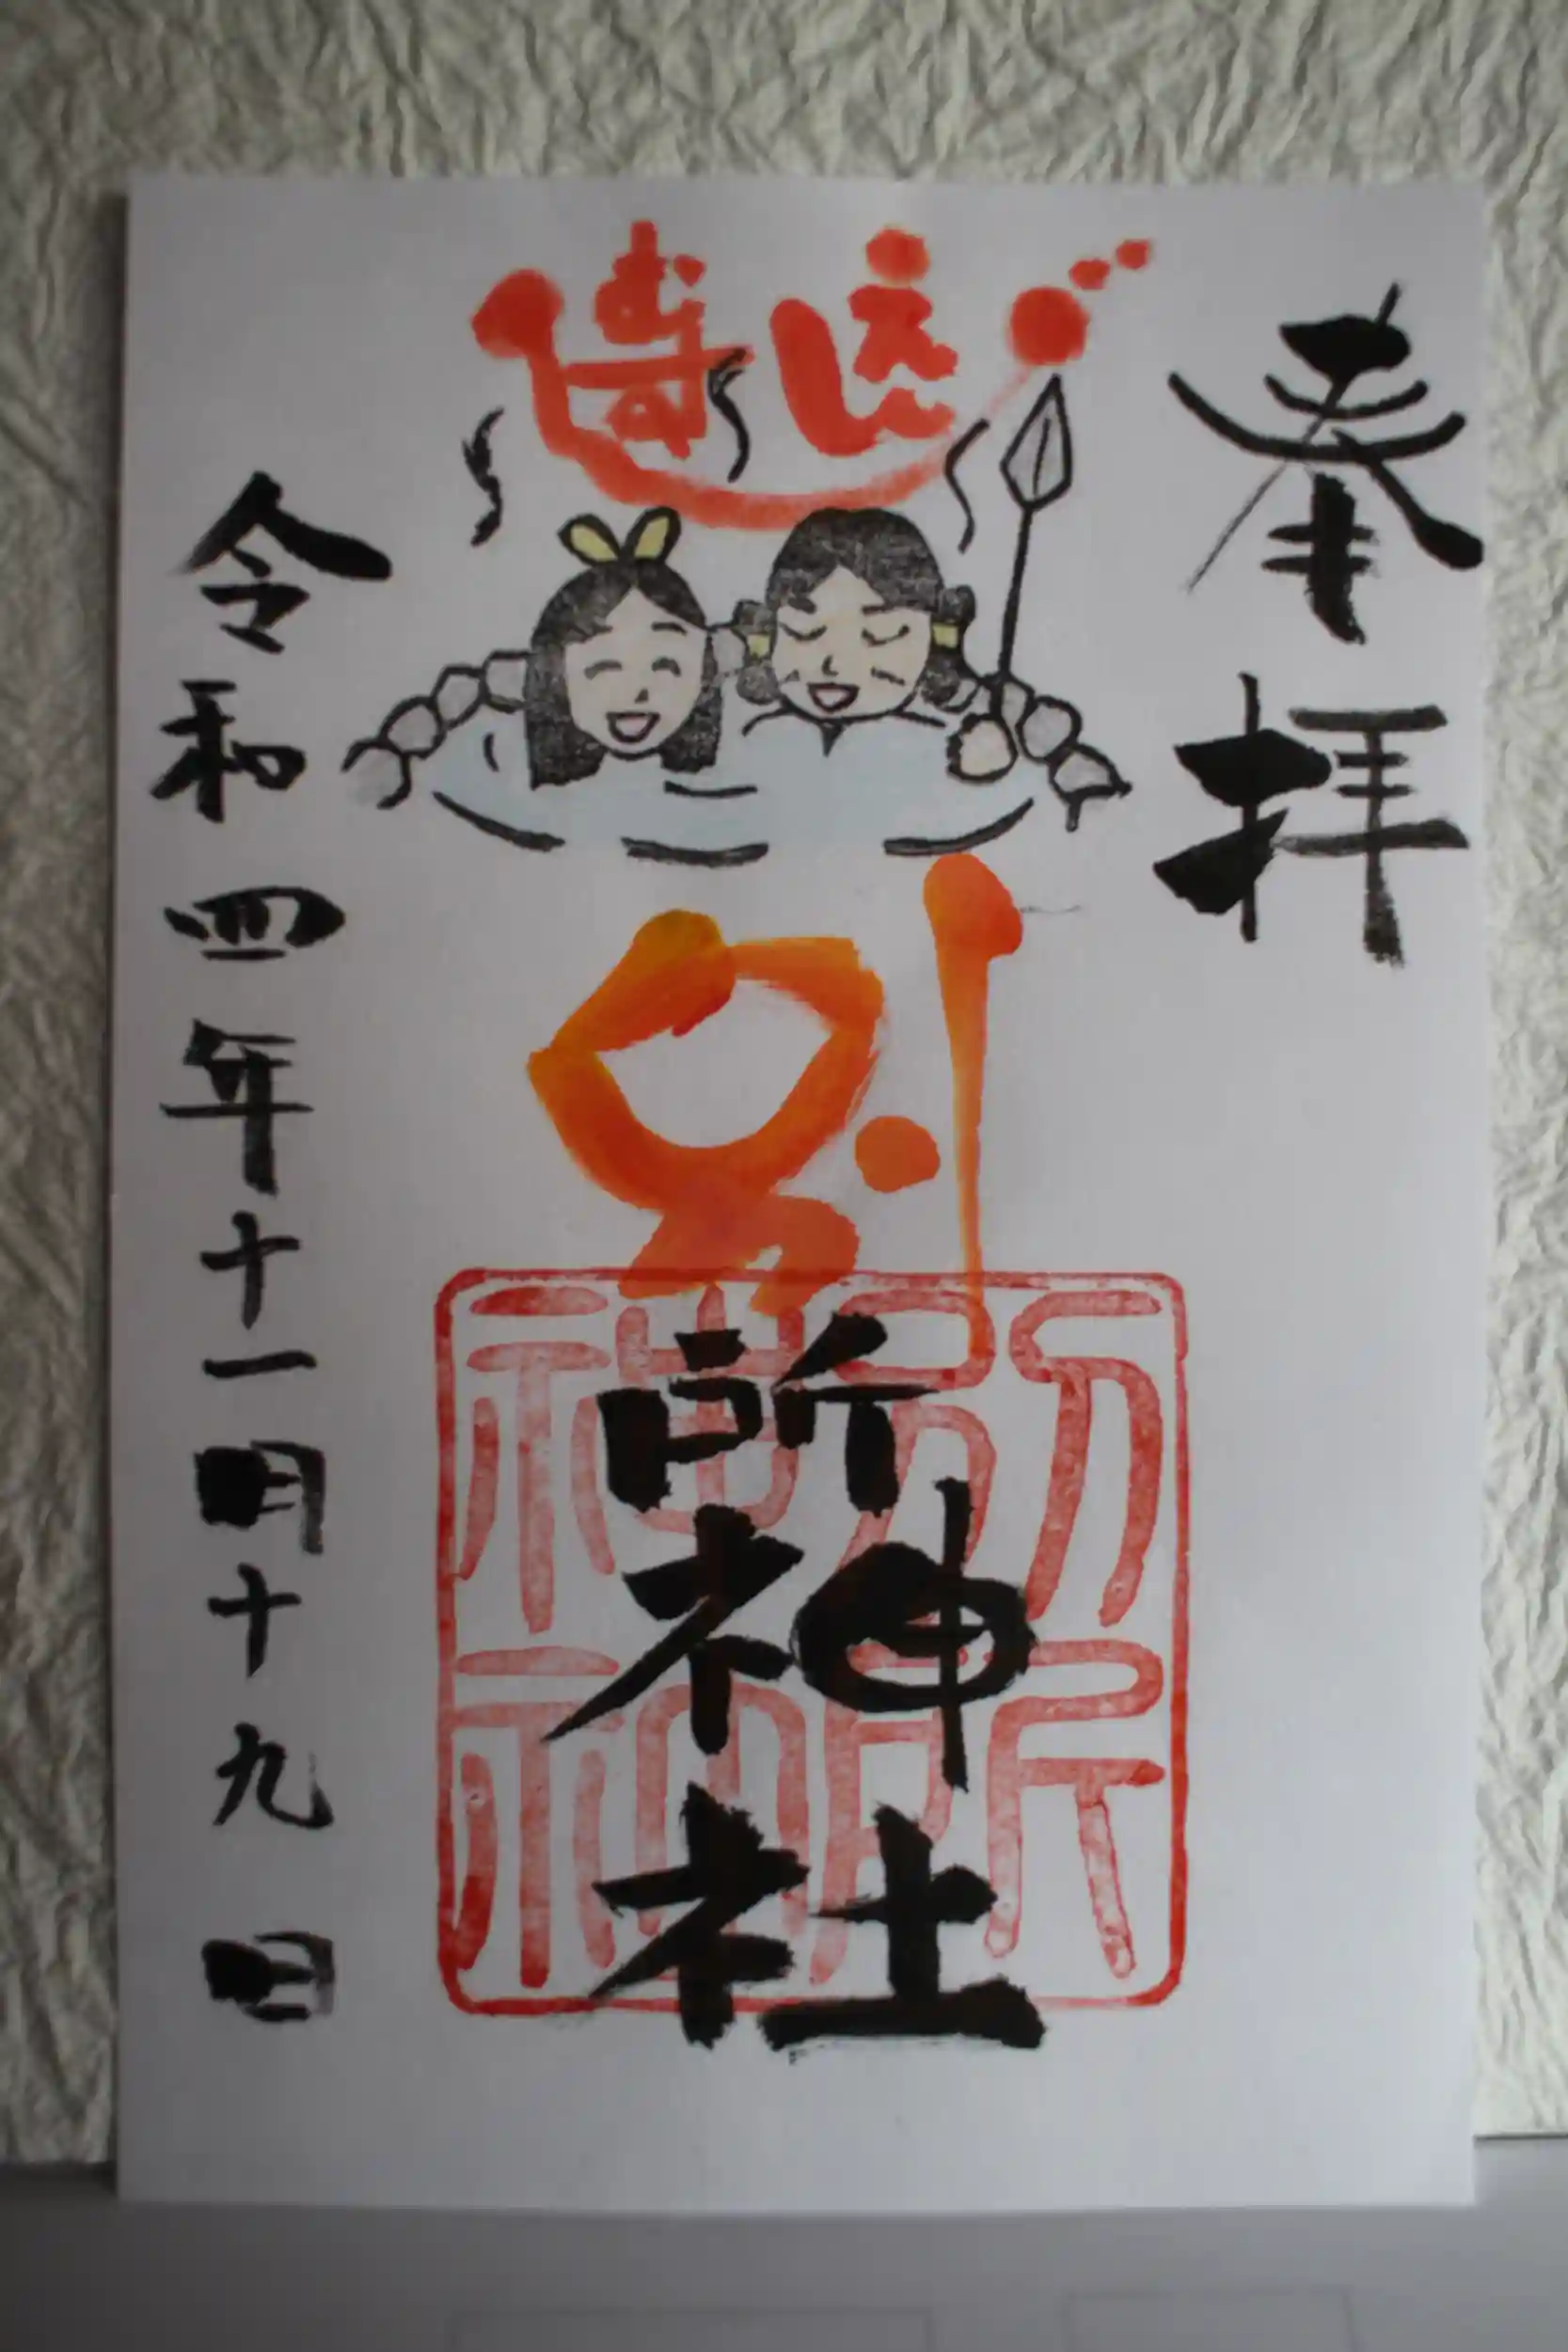 奉拝
別所神社
別所神社
令和四年十一月十九日